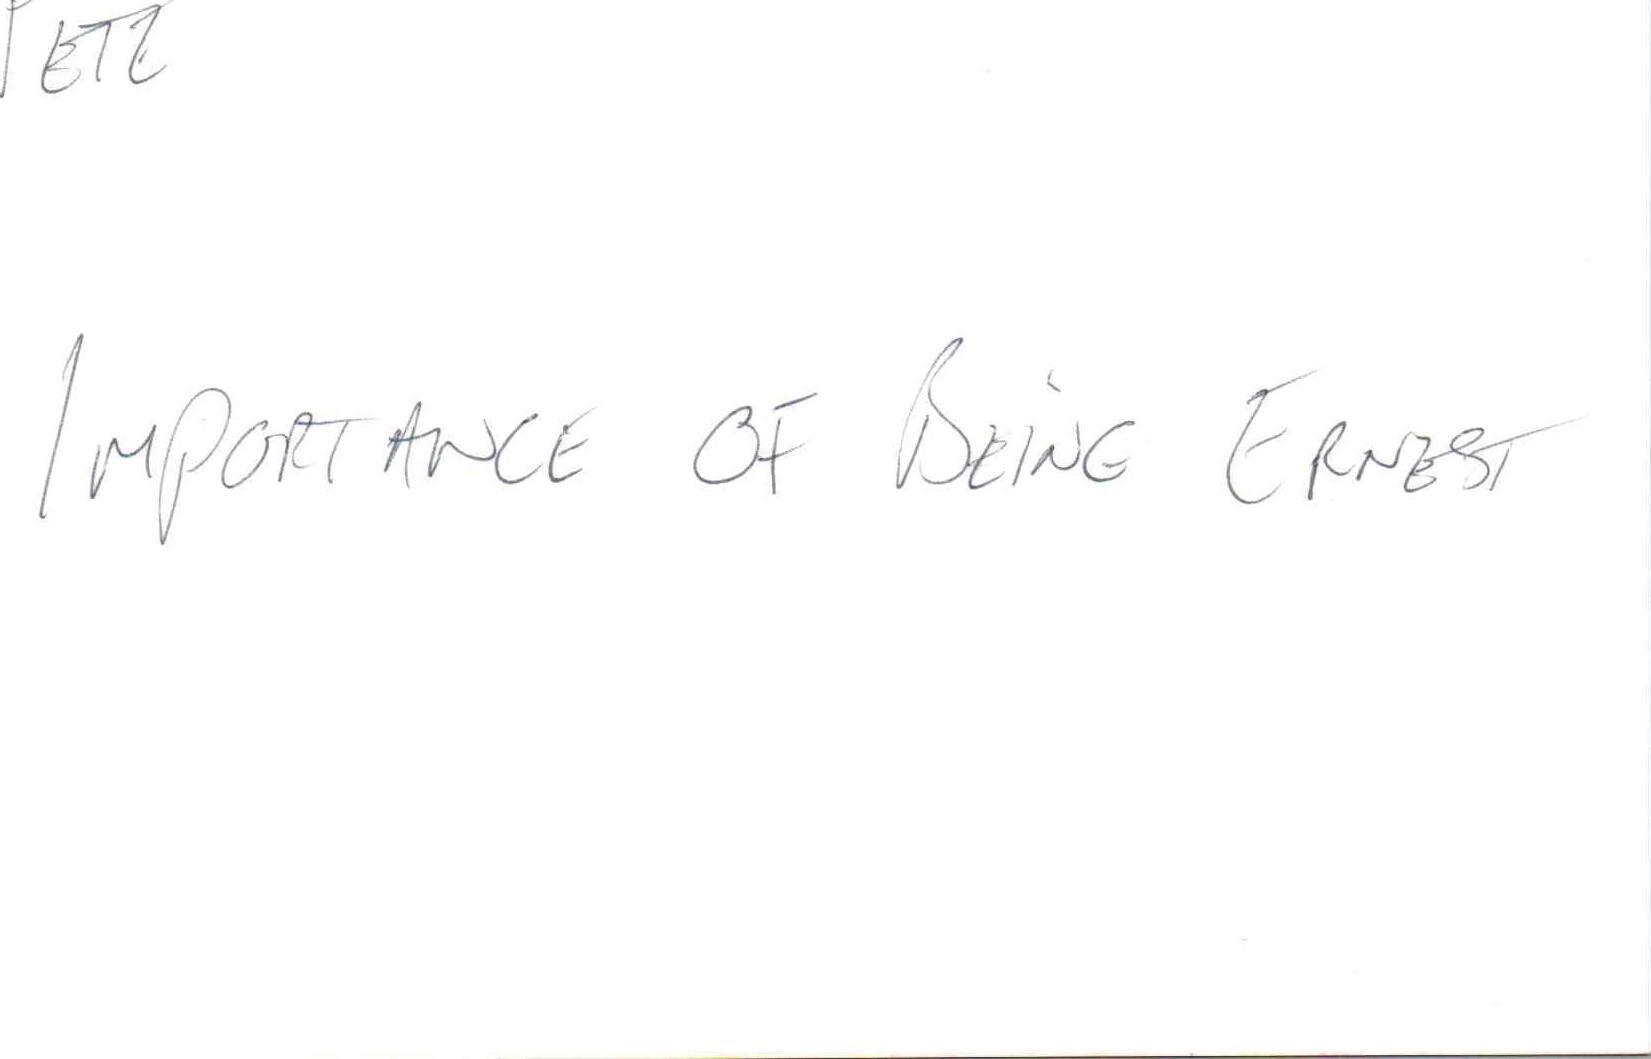 PETE
IMPORTANCE OF BEING ERNEST